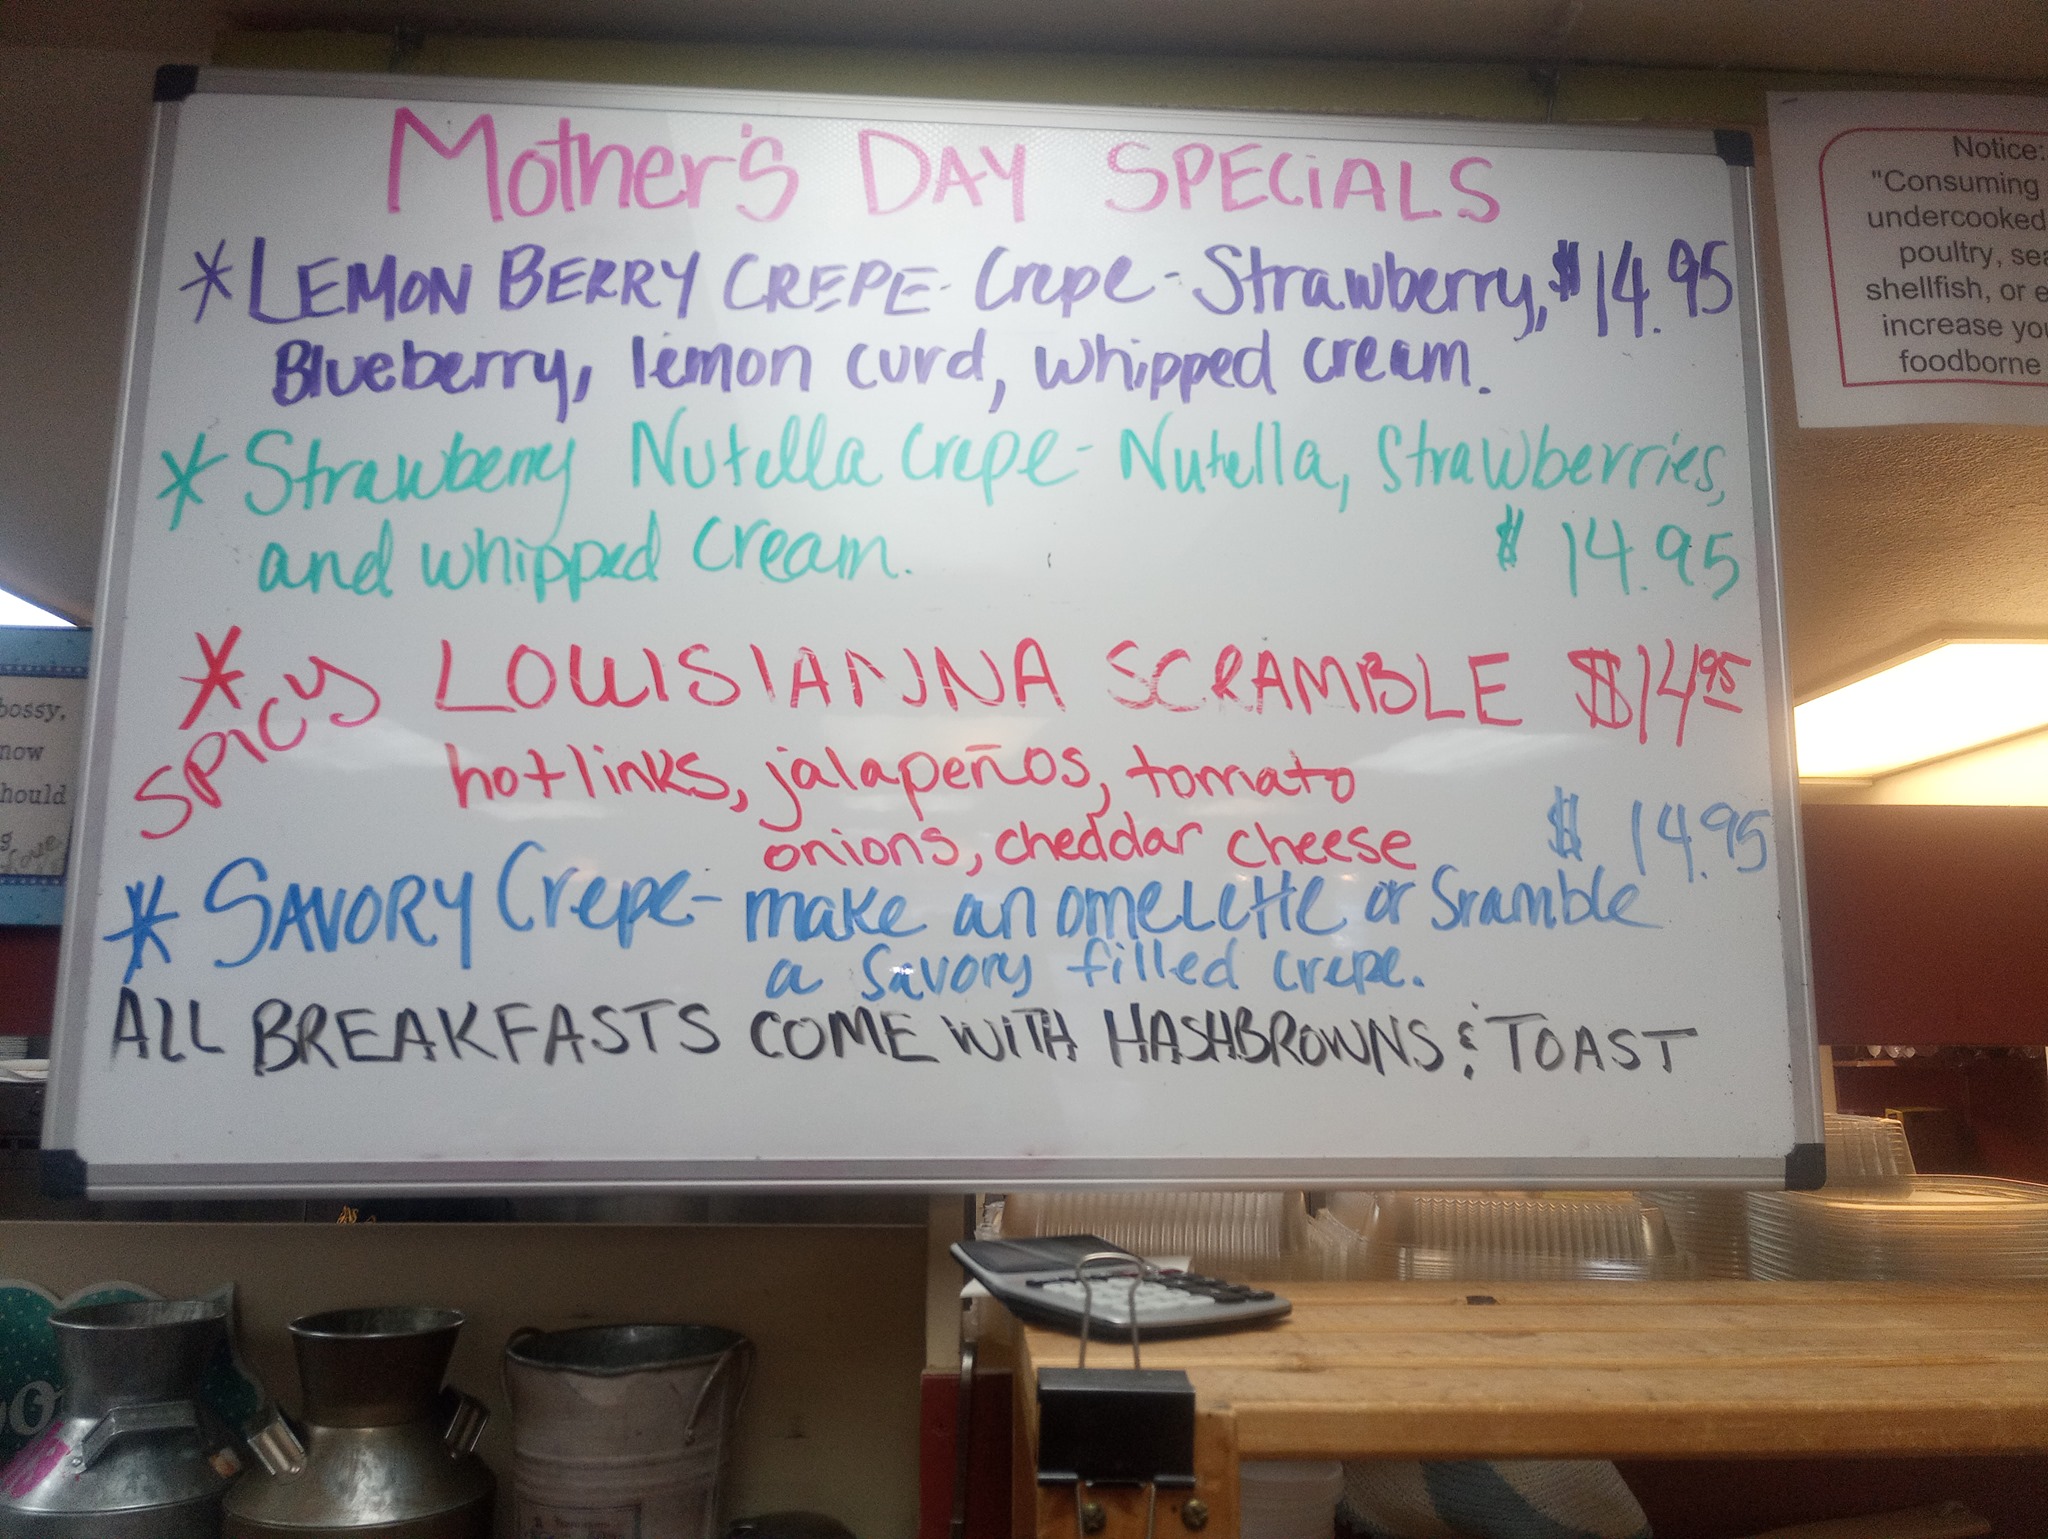 Mother's DAY SPECiALS
* LEMON BERRY CREPE - Crepe - Strawberry, $14.95
Blueberry, lemon curd, whipped cream.
* Strawberry Nutella Crepe - Nutella, Strawberries,
and whipped cream. $14.95
* SPICY LOUISIANNA SCRAMBLE $14.95
hotlinks, jalapeños, tomato
onions, cheddar cheese
$14.95
* SAVORY Crepe - make an omelette or Sramble
a Savory filled crepe.
ALL BREAKFASTS COME WITH HASHBROWNS & TOAST
Notice:
"Consuming
undercooked
poultry, sea
shellfish, or e
increase you
foodborne
bossy,
now
hould
love